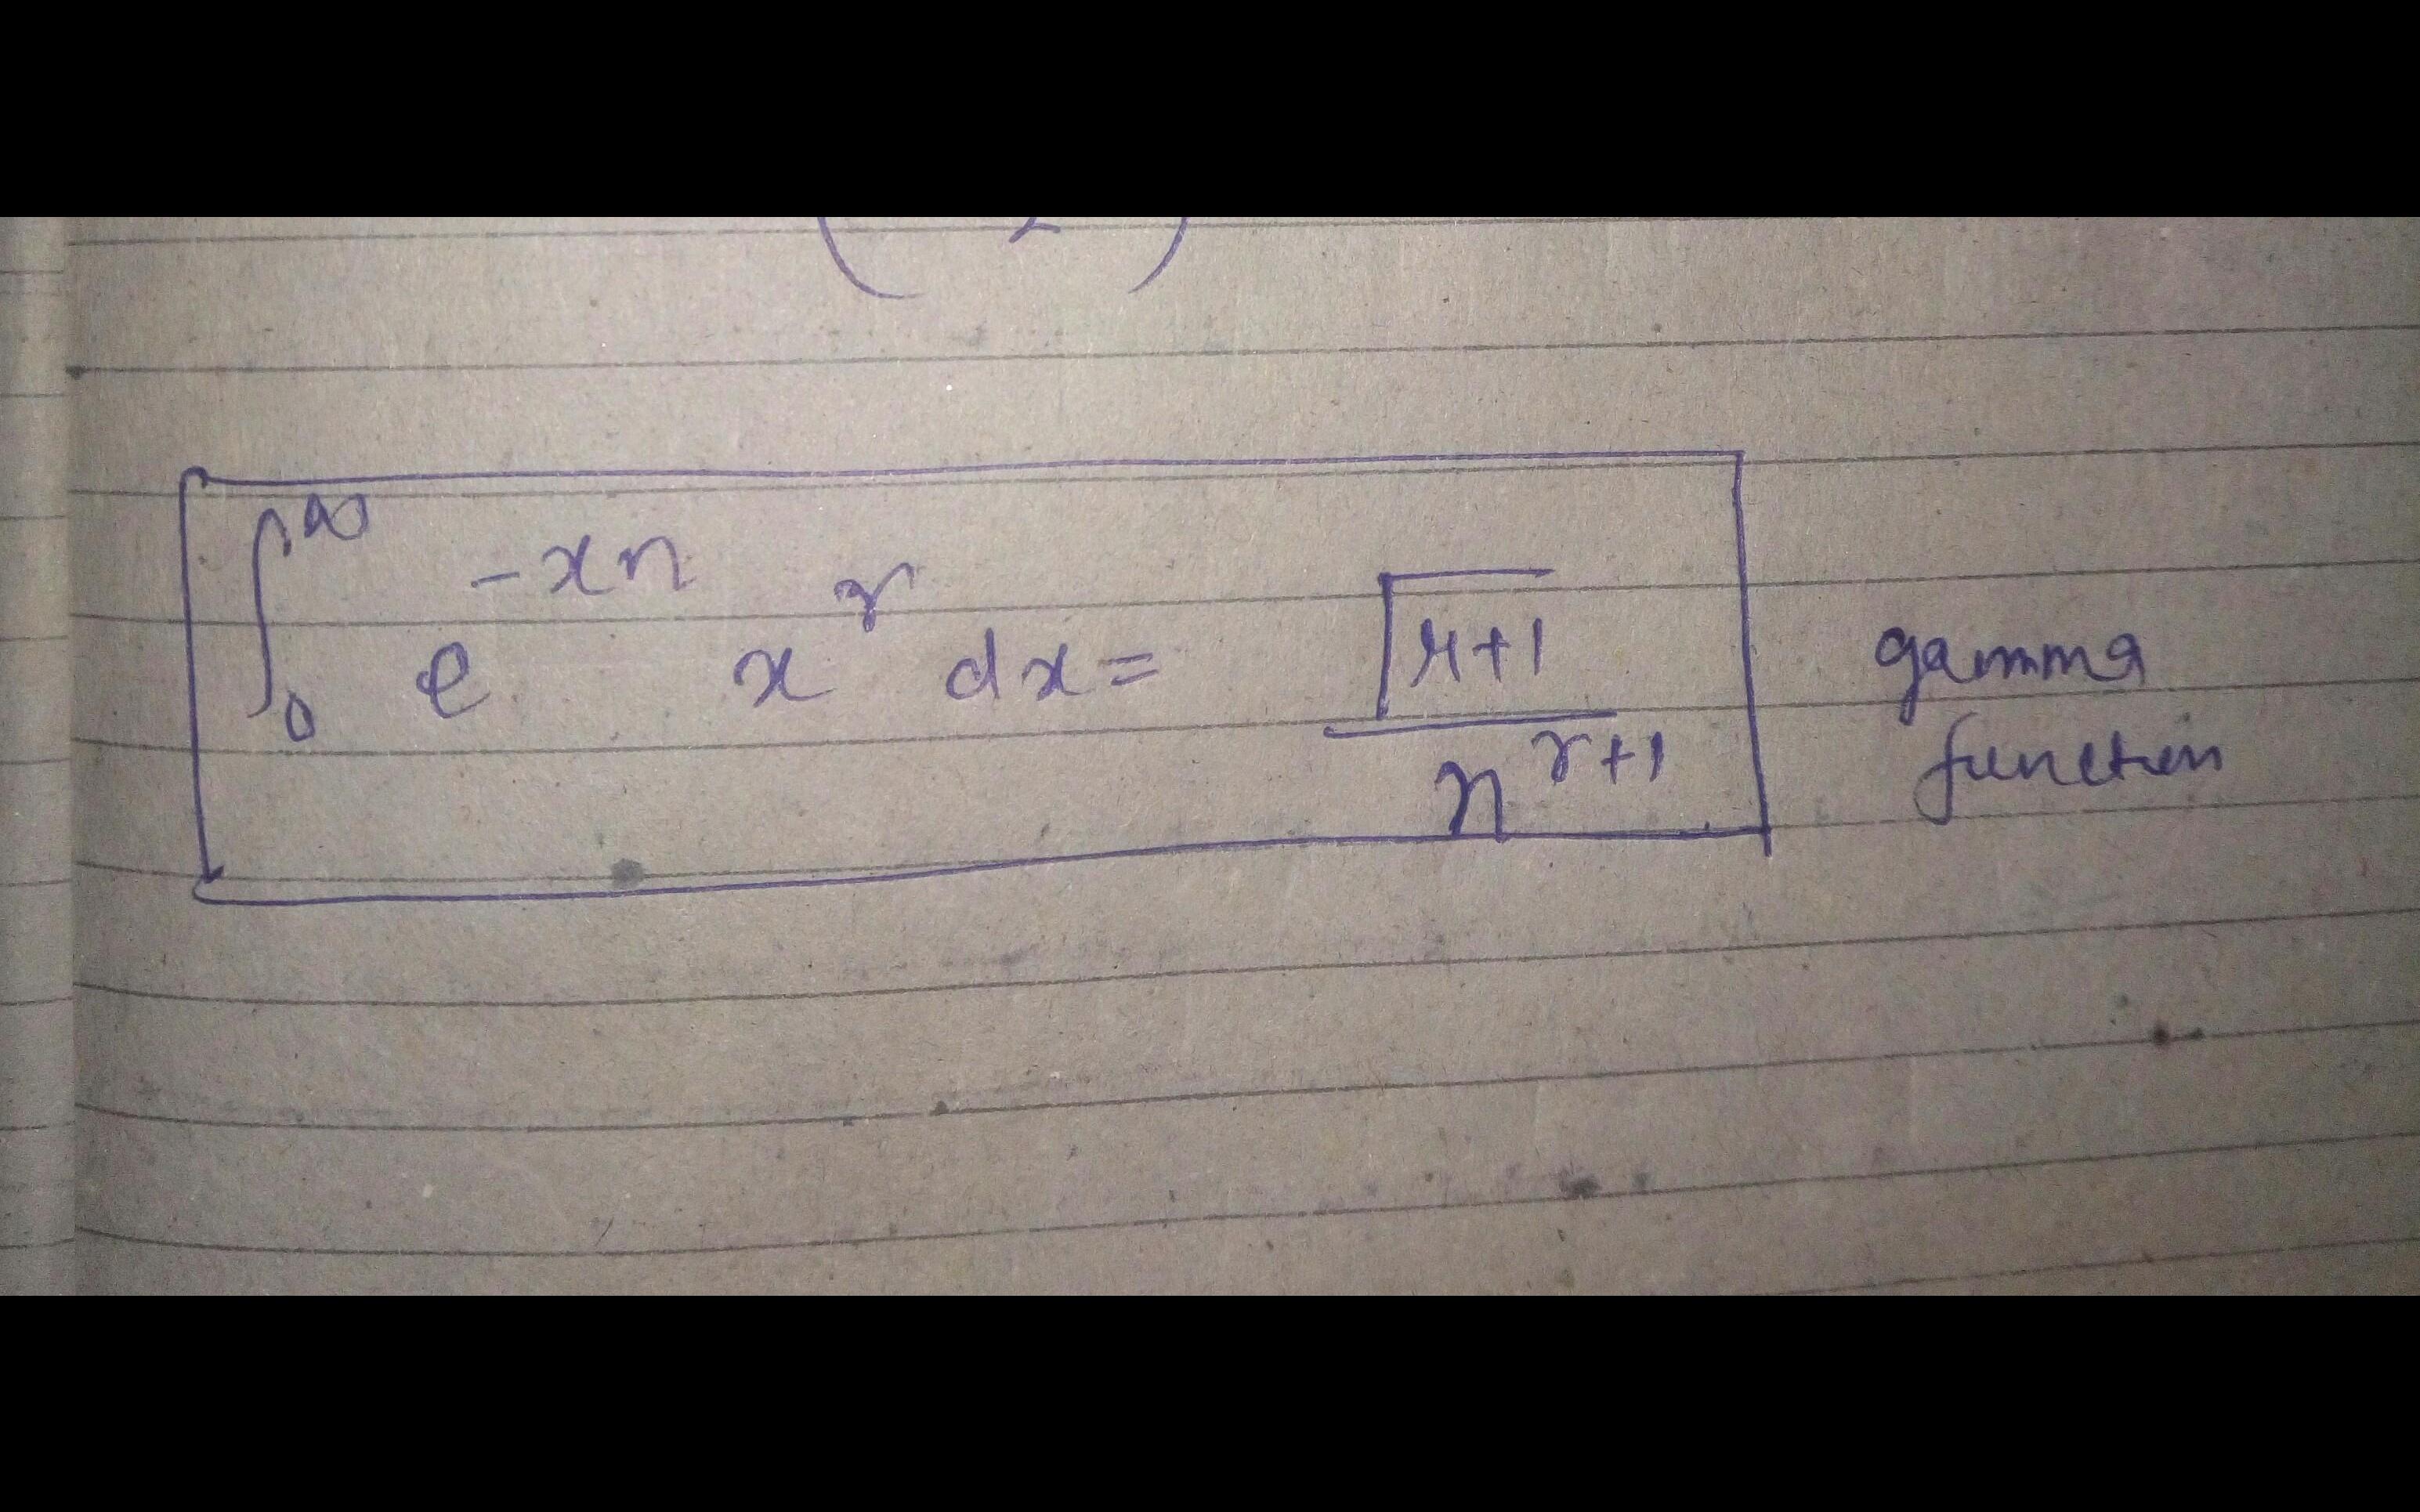 ∫₀^∞ e^{-xn} x^r dx = Γ(r+1) / n^{r+1}
gamma
function